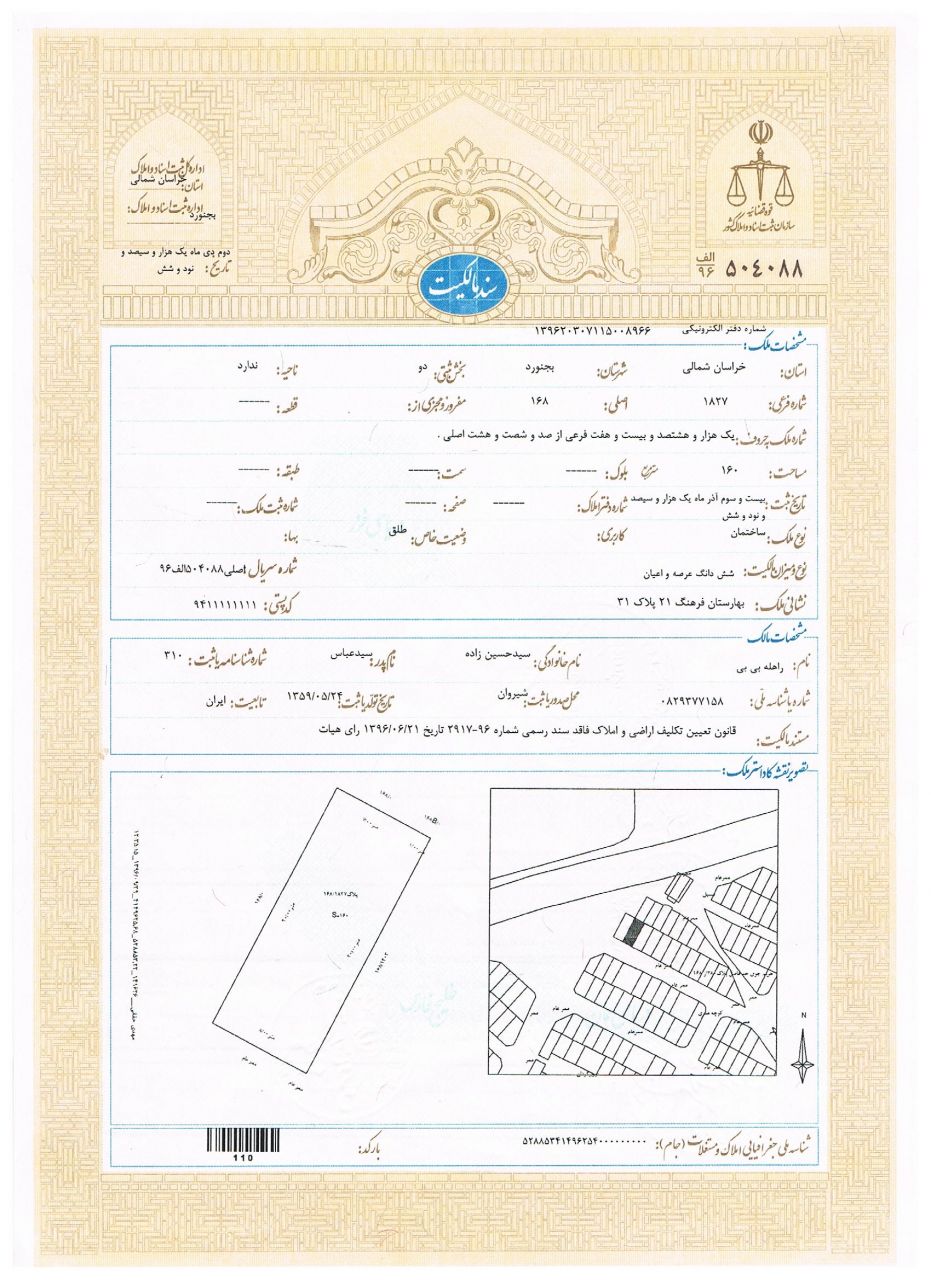 قوه قضائیه
سازمان ثبت اسناد و املاک کشور
الف ۹۶ ۵۰۴۰۸۸
اداره کل ثبت اسناد و املاک
استان: خراسان شمالی
اداره ثبت اسناد و املاک: بجنورد
دوم دی ماه یک هزار و سیصد و
تاریخ: نود و شش
سند مالکیت
شماره دفتر الکترونیکی ۱۳۹۶۲۰۳۰۷۱۱۵۰۰۸۹۶۶
مشخصات ملک:
استان: خراسان شمالی شهرستان: بجنورد بخش ثبتی: دو ناحیه: ندارد
شماره فرعی: ۱۸۲۷ اصلی: ۱۶۸ مفروز و مجزی از: قطعه: ------
شماره ملک به حروف: یک هزار و هشتصد و بیست و هفت فرعی از صد و شصت و هشت اصلی .
مساحت: ۱۶۰ متر مربع بلوک: ------ سمت: ------ طبقه: ------
تاریخ ثبت: بیست و سوم آذر ماه یک هزار و سیصد شماره دفتر املاک: ------ صفحه: ------ شماره ثبت ملک: ------
و نود و شش
نوع ملک: ساختمان کاربری: وضعیت خاص: طلق بها:
نوع و میزان مالکیت: شش دانگ عرصه و اعیان شماره سریال اصلی۵۰۴۰۸۸الف۹۶
نشانی ملک: بهارستان فرهنگ ۲۱ پلاک ۳۱ کد پستی: ۹۴۱۱۱۱۱۱۱۱
مشخصات مالک
نام: راهله بی بی نام خانوادگی: سیدحسین زاده نام پدر: سیدعباس شماره شناسنامه یا ثبت: ۳۱۰
شماره یا شناسه ملی: ۰۸۲۹۳۷۷۱۵۸ محل صدور یا ثبت: شیروان تاریخ تولد یا ثبت: ۱۳۵۹/۰۵/۲۴ تابعیت: ایران
مستند مالکیت: قانون تعیین تکلیف اراضی و املاک فاقد سند رسمی شماره ۹۶-۲۹۱۷ تاریخ ۱۳۹۶/۰۶/۲۱ رای هیات
تصویر نقشه کاداستر ملک:
پلاک۱۶۸/۱۸۲۷
S=۱۶۰
ممر عام
ممر عام
ممر عام
ممر عام
ممر عام
ممر عام
ممر عام
ممر
ممر
N
شناسه ملی جغرافیایی املاک و مستغلات (جام): ۵۲۸۸۵۳۴۱۴۹۶۲۵۴۰۰۰۰۰۰۰۰۰
بارکد:
110